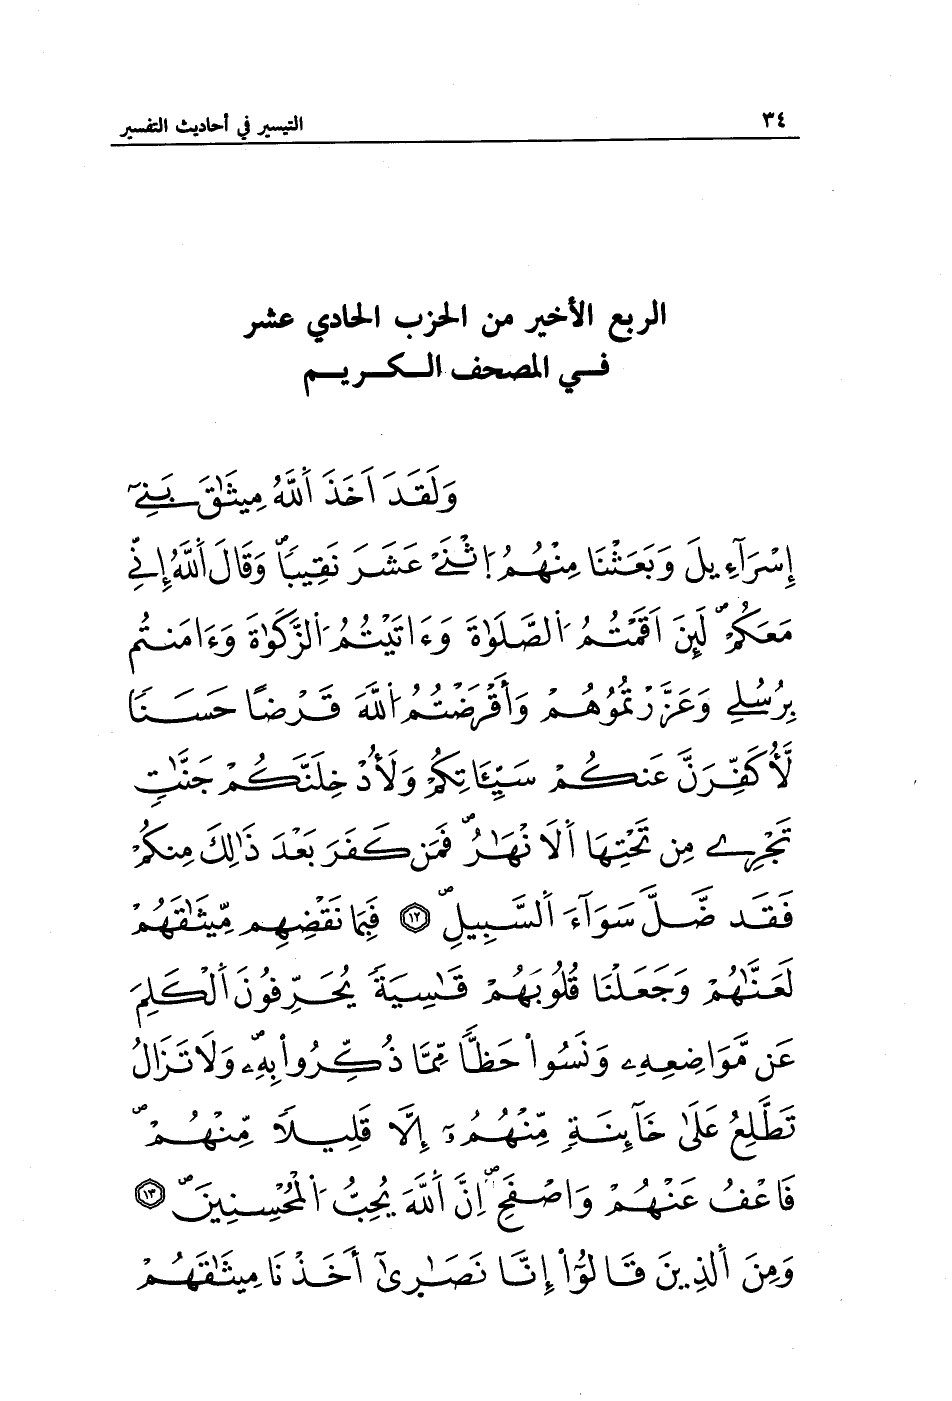 ٣٤
التيسير في أحاديث التفسير
الربع الأخير من الحزب الحادي عشر
في المصحف الكريم
وَلَقَدَ اَخَذَ اَللَّهُ مِيثَٰقَ بَنِےٓ
إِسْرَآءِيلَ وَبَعَثْنَا مِنْهُمُ اُ۪ثْنَےْ عَشَرَ نَقِيباٗۖ وَقَالَ اَللَّهُ إِنِّے
مَعَكُمْۖ لَئِنَ اَقَمْتُمُ اُلصَّلَوٰةَ وَءَاتَيْتُمُ اُلزَّكَوٰةَ وَءَامَنتُم
بِرُسُلِے وَعَزَّرْتُمُوهُمْ وَأَقْرَضْتُمُ اُللَّهَ قَرْضاً حَسَناٗ
لَّأُكَفِّرَنَّ عَنكُمْ سَيِّـَٔاتِكُمْ وَلَأُدْخِلَنَّكُمْ جَنَّٰتٖ
تَجْرِے مِن تَحْتِهَا اَلَانْهَٰرُۖ فَمَن كَفَرَ بَعْدَ ذَٰلِكَ مِنكُمْ
فَقَد ضَّلَّ سَوَآءَ اَلسَّبِيلِۖ ١٢ فَبِمَا نَقْضِهِم مِّيثَٰقَهُمْ
لَعَنَّٰهُمْ وَجَعَلْنَا قُلُوبَهُمْ قَٰسِيَةٗ يُحَرِّفُونَ اَلْكَلِمَ
عَن مَّوَاضِعِهِۦ وَنَسُواْ حَظّاٗ مِّمَّا ذُكِّرُواْ بِهِۦۖ وَلَا تَزَالُ
تَطَّلِعُ عَلَىٰ خَآئِنَةٖ مِّنْهُمُۥٓ إِلَّا قَلِيلاٗ مِّنْهُمْۖ
فَاعْفُ عَنْهُمْ وَاصْفَحِۖ اِنَّ اَللَّهَ يُحِبُّ اُلْمُحْسِنِينَۖ ١٣
وَمِنَ اَلذِينَ قَالُوٓاْ إِنَّا نَصَٰرَىٰٓ أَخَذْنَا مِيثَٰقَهُمْ